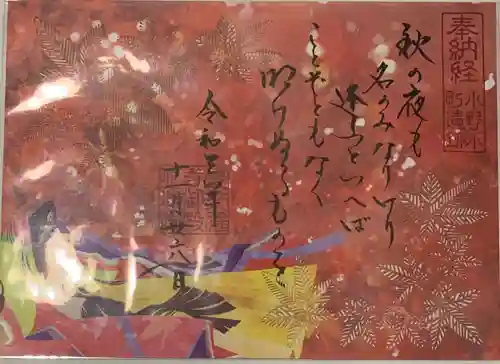 奉納経
小野小
秋の夜も
名のみなりけり
逢ふといへば
ことぞともなく
明けぬるものを
令和三年
十一月廿六日